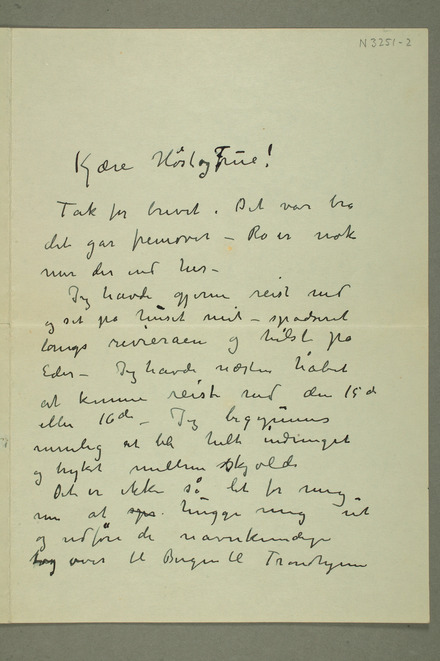 N3251-2
Kjære Høst og Frue!
Tak for brevet. Det var bra
det går fremover – Ro er nok
mer der end her –
Jeg havde gjerne reist ned
og set på huset mit – spadseret
langs rivieraen og hilst på
Eder – Jeg havde næsten håbet
at kunne reist ned den 15de
eller 16de – Jeg begynner
nemlig at bli helt indringet
og trykt mellem skjolde
Det er ikke så let for mig
nu at hugge mig ut
og udføre de navnkundige
tog over til Bergen til Trondhjem